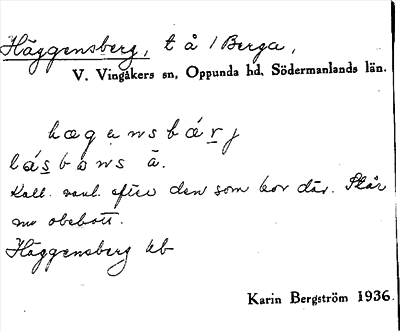 Häggensberg, t å / Berga,
V. Vingåkers sn, Oppunda hd, Södermanlands län.
hægensbárj
låsbons ä.
Kall. vanl. efter den som bor där. Står
nu obebott.
Häggensberg kb
Karin Bergström 1936.